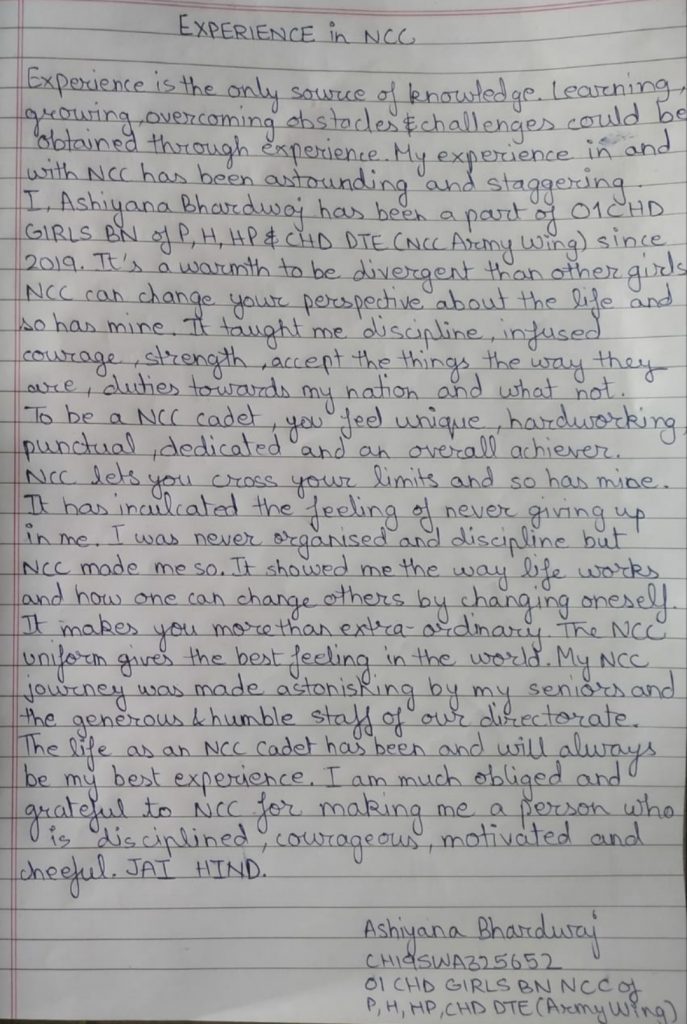 EXPERIENCE in NCC
Experience is the only source of knowledge. Learning,
growing, overcoming obstacles & challenges could be
obtained through experience. My experience in and
with NCC has been astounding and staggering.
I, Ashiyana Bhardwaj has been a part of 01 CHD
GIRLS BN of P, H, HP & CHD DTE (NCC Army Wing) since
2019. It's a warmth to be divergent than other girls
NCC can change your perspective about the life and
so has mine. It taught me discipline, infused
courage, strength, accept the things the way they
are, duties towards my nation and what not.
To be a NCC cadet, you feel unique, hardworking,
punctual, dedicated and an overall achiever.
NCC lets you cross your limits and so has mine.
It has inculcated the feeling of never giving up
in me. I was never organised and discipline but
NCC made me so. It showed me the way life works
and how one can change others by changing oneself.
It makes you more than extra-ordinary. The NCC
uniform gives the best feeling in the world. My NCC
journey was made astonishing by my seniors and
the generous & humble staff of our directorate.
The life as an NCC cadet has been and will always
be my best experience. I am much obliged and
grateful to NCC for making me a person who
is disciplined, courageous, motivated and
cheeful. JAI HIND.
Ashiyana Bhardwaj
CH19SWA325652
01 CHD GIRLS BN NCC of
P, H, HP, CHD DTE (Army Wing)